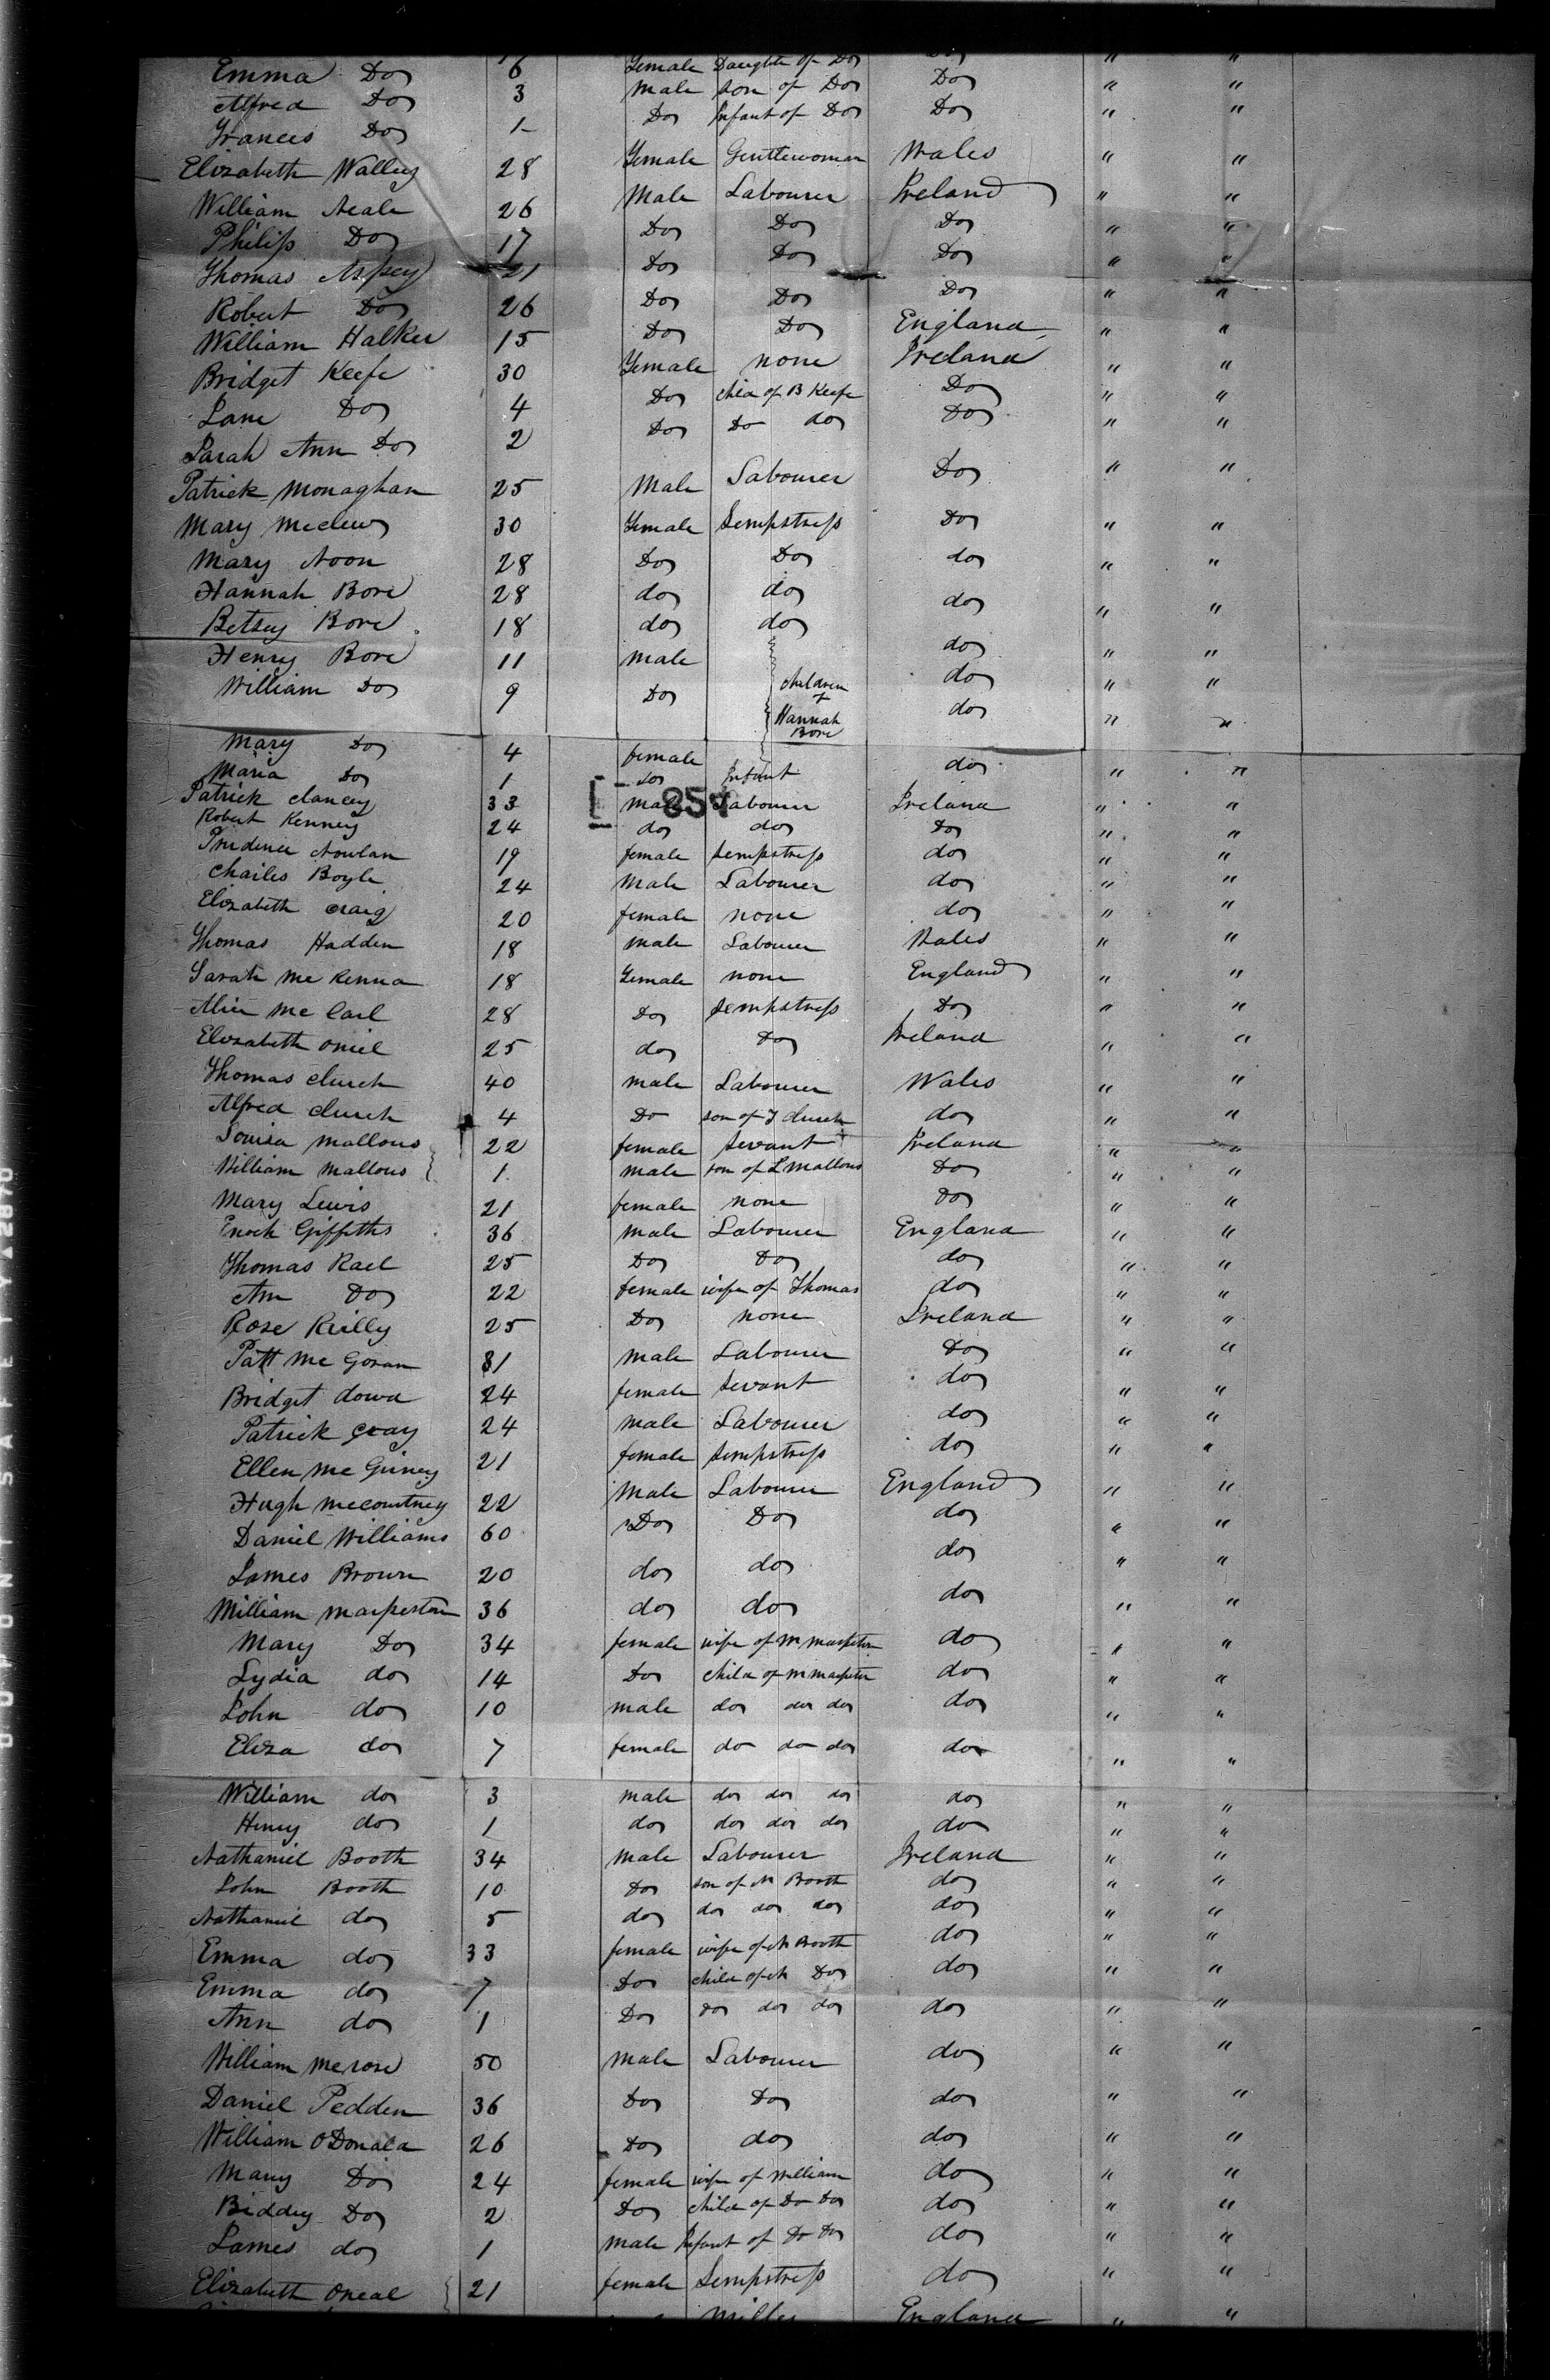 Emma Do 6 Female Daughter of Do Do " "
Alfred Do 3 Male Son of Do Do " "
Frances Do 1 Do Infant of Do Do " "
Elizabeth 28 Female Gentlewoman Wales " "
William Neale 26 Male Labourer Ireland " "
Philip Do 17 Do Do Do " "
Thomas Aspey 21 Do Do Do " "
Robert Do 26 Do Do Do " "
William Halker 15 Do Do England " "
Bridget Keefe 30 Female none Ireland " "
Jane Do 4 Do child of B Keefe Do " "
Sarah Ann Do 2 Do Do do Do " "
Patrick Monaghan 25 Male Labourer Do " "
Mary 30 Female Sempstress Do " "
Mary Noon 28 Do Do do " "
Hannah Bore 28 do do do " "
Betsey Bore 18 do do
Henry Bore 11 male do " "
William Do 9 Do children of Hannah Bore do " "
do " "
Mary Do 4 female
Maria Do 1 Do Infant do " "
Patrick Clancey 33 male Labourer Ireland " "
Robert Kenney 24 do do Do " "
Prudence Nowlan 19 female Sempstress do " "
Charles Boyle 24 Male Labourer do " "
Elizabeth Craig 20 female none do " "
Thomas Hadden 18 male Labourer Wales " "
Sarah McKenna 18 Female none England " "
Alice McCarl 28 Do Sempstress Do " "
Elizabeth Oniel 25 do Do Ireland " "
Thomas Church 40 male Labourer Wales " "
Alfred Church 4 Do son of T Church do " "
Louisa Mallous 22 female Servant Ireland " "
William Mallous 1 male son of L Mallous Do " "
Mary Lewis 21 female none Do " "
Enoch Giffiths 36 male Labourer England " "
Thomas Rael 25 Do Do do " "
Ann Do 22 female wife of Thomas do " "
Rose Reilly 25 Do none Ireland " "
Patt McGoran 31 male Labourer Do " "
Bridget Dowd 24 female Servant do " "
Patrick Gray 24 male Labourer do " "
Ellen McGiney 21 female Sempstress do " "
Hugh McCourtney 22 Male Labourer England " "
Daniel Williams 60 Do Do do " "
James Brown 20 do do do " "
William Marperton 36 do do do " "
Mary Do 34 female wife of W Marperton do " "
Lydia do 14 Do child of W do " "
John do 10 male do do do do " "
Eliza do 7 female do do do do " "
William do 3 male do do do do " "
Henry do 1 do do do do do " "
Nathaniel Booth 34 male Labourer Ireland " "
John Booth 10 Do son of N Booth do " "
Nathaniel do 5 do do do do do " "
Emma do 33 female wife of N Booth do " "
Emma do 7 Do child of N Do do " "
Ann do 1 Do Do do do do " "
William 50 male Labourer do " "
Daniel Pedden 36 Do Do do " "
William O'Donald 26 Do do do " "
Mary Do 24 female wife of William do " "
Biddey Do 2 Do child of Do Do do " "
James do 1 male Infant of Do Do do " "
Elizabeth Oneal 21 female Sempstress do " "
England " "